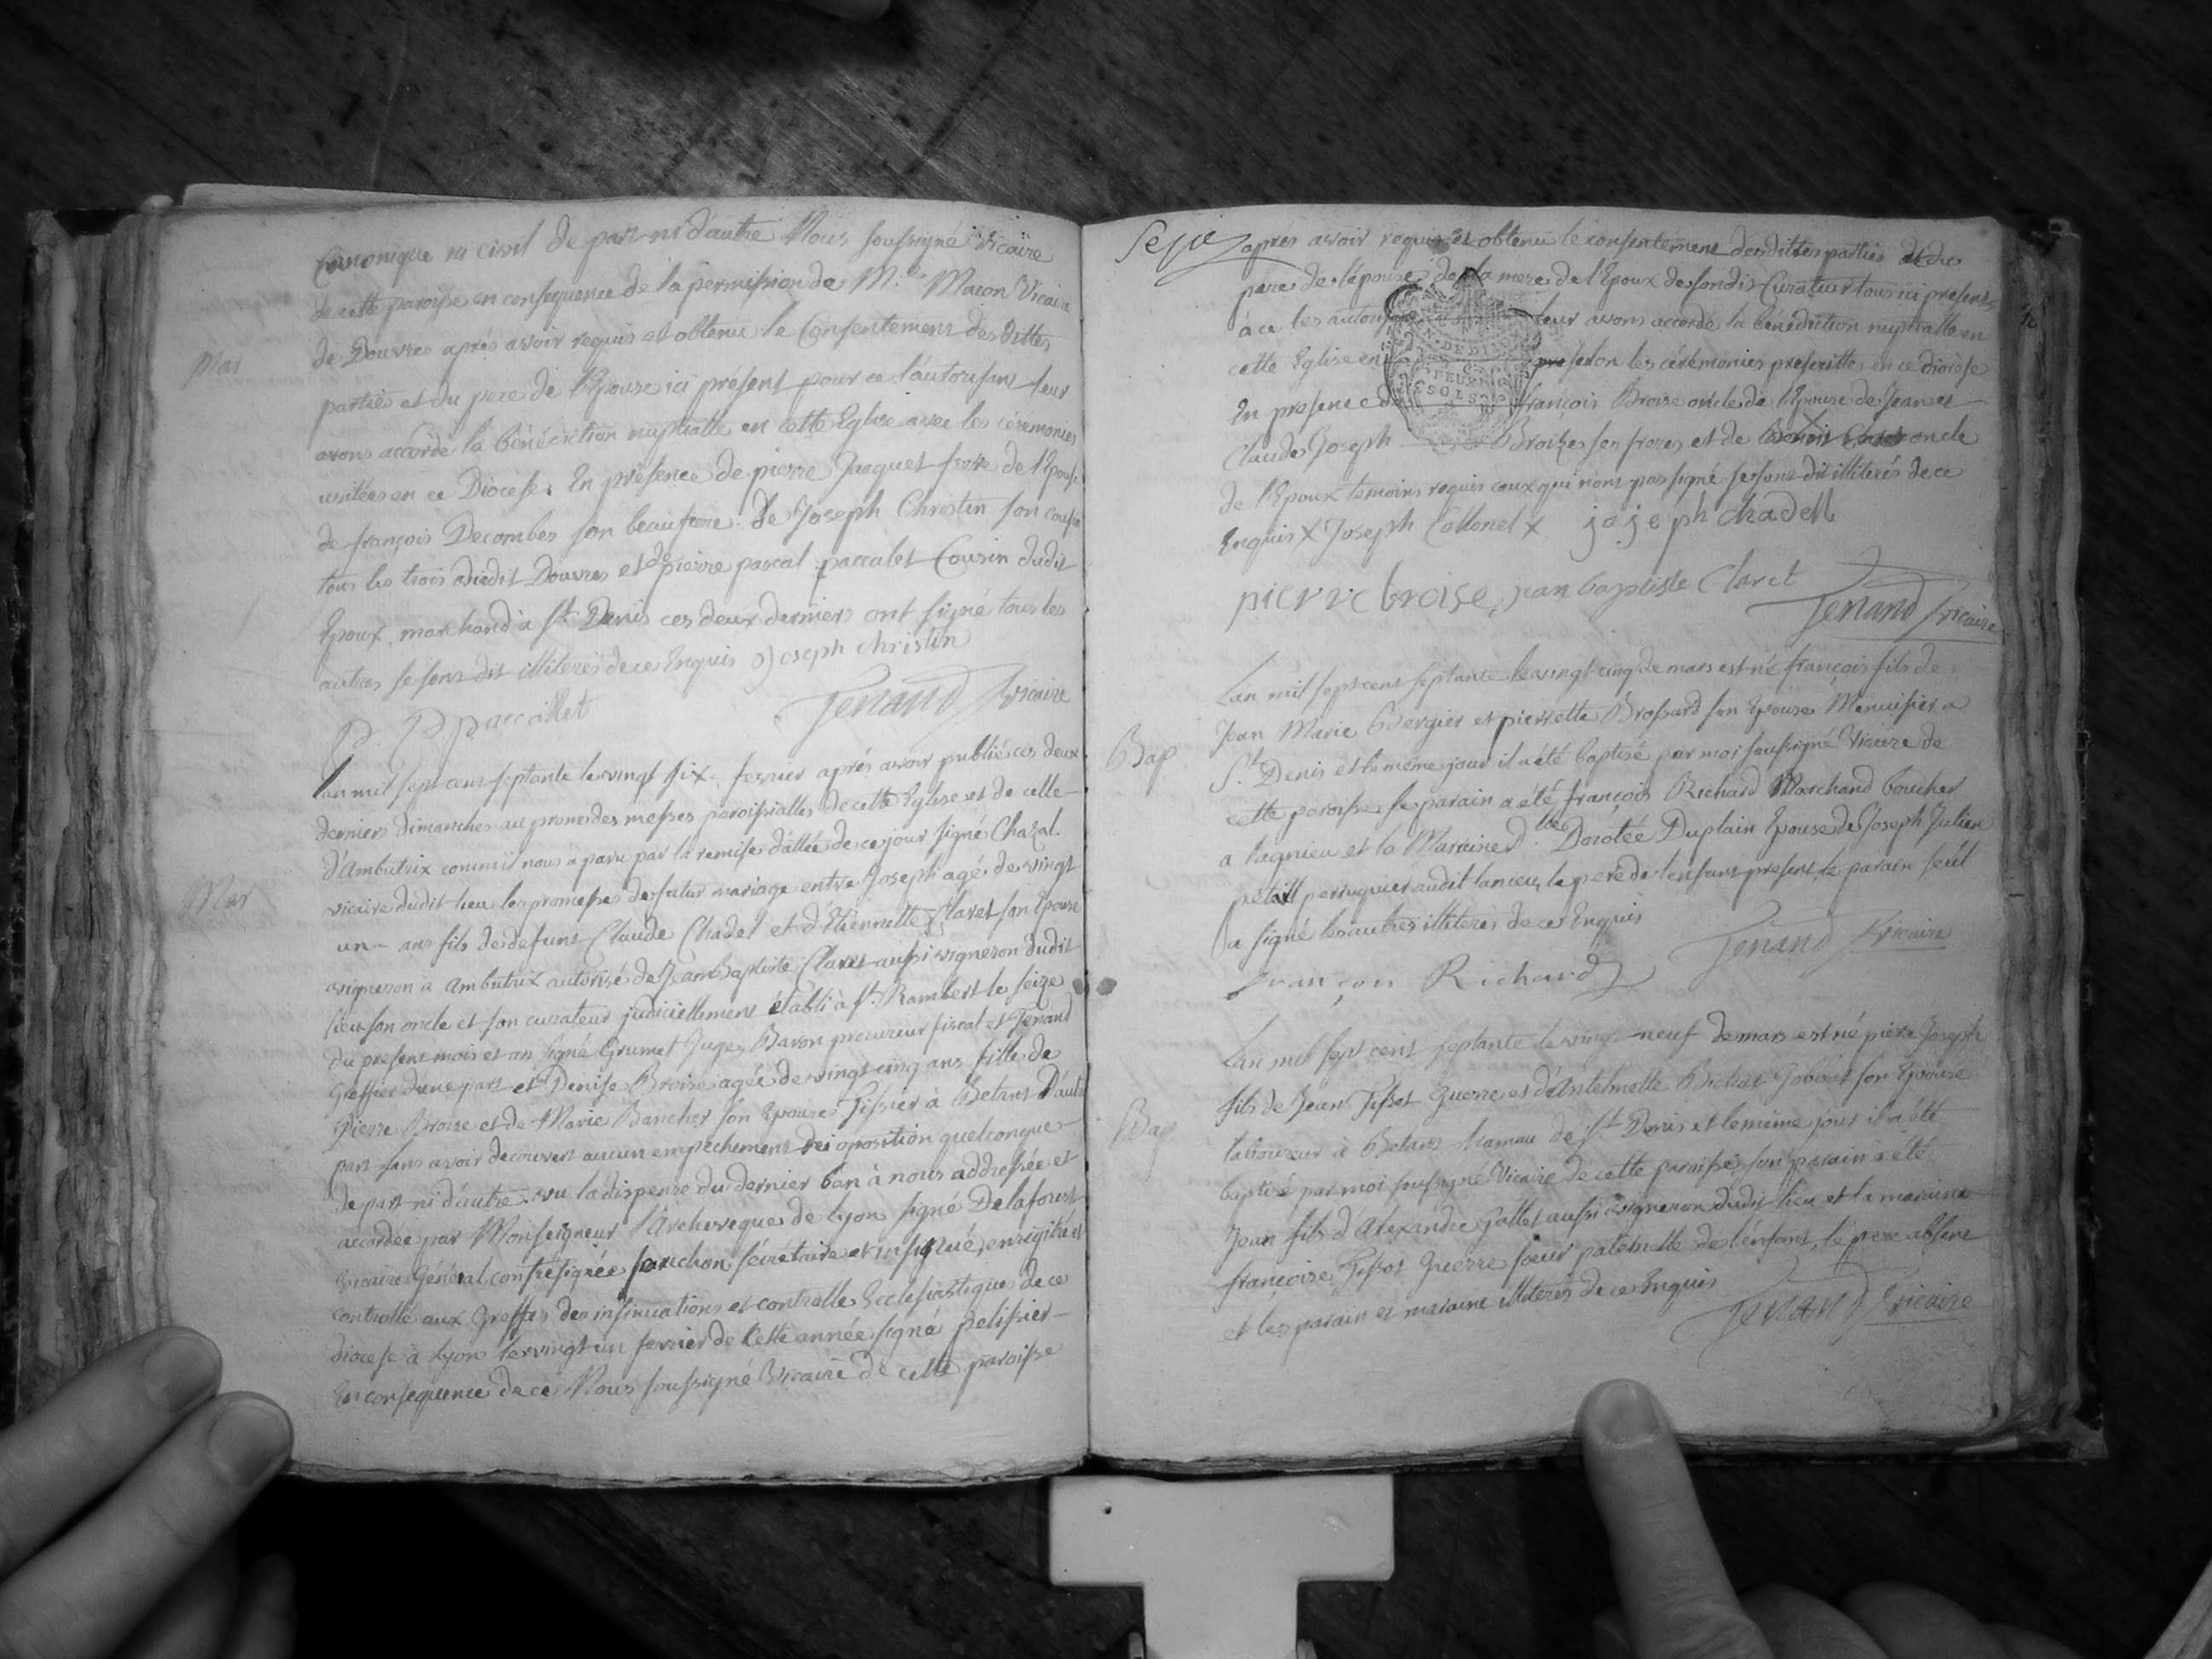 Canonique ni civil de part ni d'autre Nous soussigné Vicaire
de cette paroisse en consequence de la permission de M.r Macon Vicaire
de Douvres après avoir requis et obtenu le Consentement des dittes
Mar
parties et du pere de l'Epouse ici présent pour ce l'autorisant leur
avons accordé la bénédiction nuptialle en cette Eglise avec les cérémonies
usitées en ce Diocèse. En présence de pierre Jacquet frere de l'Epouse
de françois Decombes son beaufrere de Joseph Christin son cousin
tous les trois dudit Douvres et de pierre pascal paccalet Cousin dudit
Epoux marchand a St Denis ces deux derniers ont signé tous les
autres se sont dit illiterés de ce Enquis Joseph christin
P. P paccallet Tenand Vicaire
L'an mil sept cent septante le vingt six fevrier après avoir publié ces deux
derniers dimanches au prone des messes paroissialles de cette Eglise et de celle
d'Ambutrix comme il nous a paru par la remise d'attée de ce jour signé Chazal.
Mar
vicaire dudit lieu les promesses de futur mariage entre Joseph agé de vingt
un ans fils de defunt Claude Chadel et d'Etiennette Claret son Epouse
vigneron a Ambutrix autorisé de Jean Baptiste Claret aussi vigneron dudit
lieu son oncle et son curateur judiciellement établi à St Rambert le seize
du present mois et an signé Grumet Juge, Baron procureur fiscal et Tenand
Greffier d'une part et Denise Broise agée de vingt cinq ans fille de
Pierre Broise et de Marie Bancher son Epouse Tissier à Betant D'autre
part sans avoir decouvert aucun empechement ni oposition quelconque
de part ni d'autre vu la dispense du dernier ban à nous addressée et
accordée par Monseigneur l'Archeveque de Lyon signé Delaforest
Vicaire Général contresignée fauchon sécrétaire et insinué, enrigitré et
controllé aux Greffes des insinuations et controlle Ecclesiastiques de ce
diocese à Lyon le vingt un fevrier de Cette année signé pelissier
En consequence de ce Nous soussigné Vicaire de cette paroisse
après avoir requis et obtenu le consentement desdittes parties et du
pere de l'épouse de la mere de l'Epoux de sondit Curateur tous ici presents
à ce les autorisant leur avons accordé la bénédiction nuptialle en
cette Eglise selon les cérémonies prescrittes en ce diocèse
DEUX SOLS
En presence de françois Broise oncle de l'Epouse de Jean et
Claude Joseph Broise ses freres et de oncle
de l'Epoux temoins requis ceux qui n'ont pas signé se sont dit illiterés de ce
Enquis X Joseph Collonel X jojeph chadell
pierre broise, jean baptiste Claret
Tenand Vicaire
L'an mil sept cent septante le vingt cinq de mars est né françois fils de
Jean Marie Bergier et pierrette Brossard son Epouse Menuisier a
Bap
St Denis et le même jour il a été baptisé par moi soussigné Vicaire de
cette paroisse le parain a été françois Richard Marchand boucher
a lagnieu et la Maraine d.lle Dorotée Duplain Epouse de Joseph Julien
petait perruquier audit lanieu, le pere de l'enfant present, le parain seul
a signé les autres illiterés de ce Enquis
Tenand Vicaire
françois Richard
L'an mil sept cent septante le vingt neuf de mars est né piere Joseph
fils de Jean Tissot Guerre et d'Antelmette son Epouse
Bap
laboureur à Betant hamau de St Denis et le même jour il a été
baptisé par moi soussigné Vicaire de cette paroisse, son parain a été
Jean fils d'Alexandre Gallet aussi vigneron dudit lieu et la maraine
françoise Tissot Guerre soeur paternelle de l'enfant, le pere absent
et les parain et maraine illiterés de ce Enquis
Tenand Vicaire